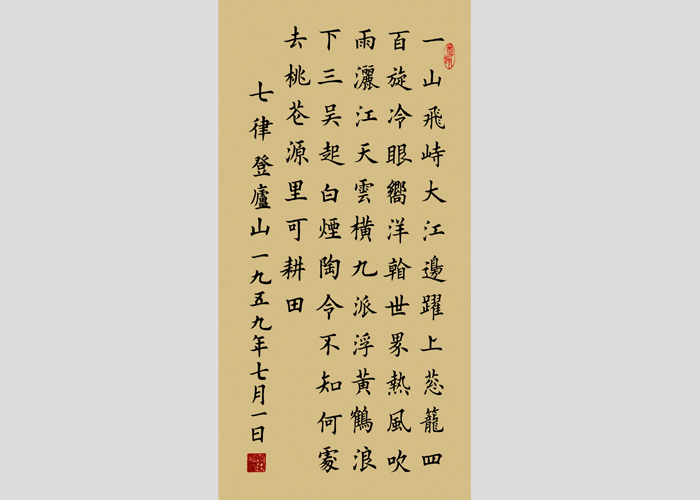 一山飛峙大江邊躍上葱籠四
百旋冷眼嚮洋看世界熱風吹
雨灑江天雲橫九派浮黃鶴浪
下三吳起白煙陶令不知何處
去桃花源里可耕田
七律登廬山一九五九年七月一日